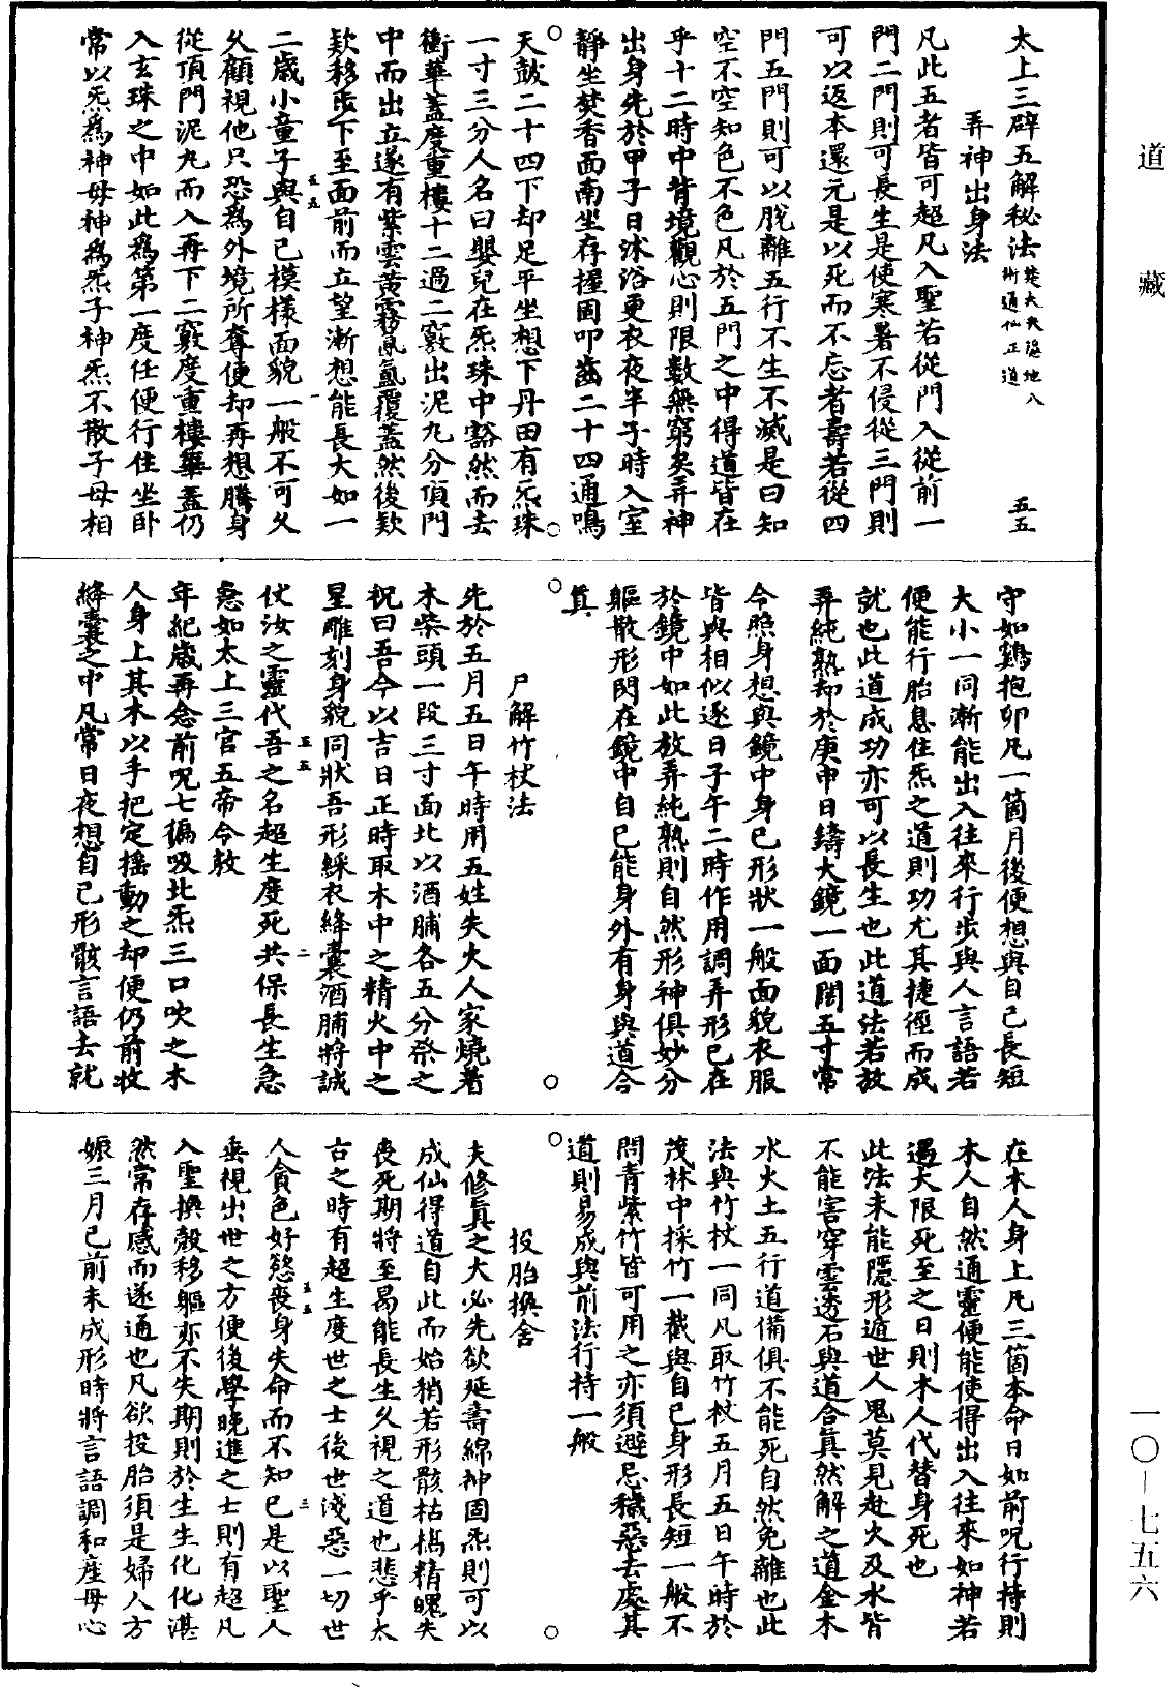 道藏
太上三辟五解秘法
五五
弄神出身法
凡此五者皆可超凡入聖若從門入從前一
門二門則可長生是使寒暑不侵從三門則
可以返本還元是以死而不忘者壽若從四
門五門則可以脫離五行不生不滅是曰知
空不空知色不色凡於五門之中得道皆在
乎十二時中背境觀心則限數無窮矣弄神
出身先於甲子日沐浴更衣夜半子時入室
靜坐焚香面南坐存握固叩齒二十四通鳴
天鼓二十四下却足平坐想下丹田有炁珠
一寸三分人名曰嬰兒在炁珠中豁然而去
衝華蓋度重樓十二過二竅出泥丸分頂門
中而出立遂有紫雲黃霧氤氳覆蓋然後欵
欵移步下至面前而立望漸想能長大如一
五五
一
二歲小童子與自己模樣面貌一般不可久
久顧視他只恐為外境所奪便却再想騰身
從頂門泥丸而入再下二竅度重樓華蓋仍
入玄珠之中如此為第一度任便行住坐卧
常以炁為神母神為炁子神炁不散子母相
守如鷄抱卵凡一箇月後便想與自己長短
大小一同漸能出入往來行步與人言語若
便能行胎息住炁之道則功尤其捷徑而成
就也此道成功亦可以長生也此道法若放
弄純熟却於庚申日鑄大鏡一面闊五寸常
令照身想與鏡中身已形狀一般面貌衣服
皆與相似逐日子午二時作用調弄形已在
於鏡中如此放弄純熟則自然形神俱妙分
軀散形閃在鏡中自已能身外有身與道合
真
尸解竹杖法
先於五月五日午時用五姓失火人家燒著
木柴頭一段三寸面北以酒脯各五分祭之
祝曰吾今以吉日正時取木中之精火中之
星雕刻身貌同狀吾形綵衣絳囊酒脯將誠
五五
二
伏汝之靈代吾之名超生度死共保長生急
急如太上三官五帝令敕
年紀歲再念前呪七徧吸北炁三口吹之木
人身上其木以手把定搖動之却便仍前收
絳囊之中凡常日夜想自己形骸言語去就
在木人身上凡三箇本命日如前呪行持則
木人自然通靈便能使得出入往來如神若
遇大限死至之日則木人代替身死也
此法未能隱形遁世人鬼莫見赴火及水皆
不能害穿雲透石與道合真然解之道金木
水火土五行道備俱不能死自然免離也此
法與竹杖一同凡取竹杖五月五日午時於
茂林中採竹一截與自己身形長短一般不
問青紫竹皆可用之亦須避忌穢惡去處其
道則易成與前法行持一般
投胎換舍
夫修真之大必先欲延壽綿神固炁則可以
成仙得道自此而始稍若形骸枯槁精魄失
喪死期將至曷能長生久視之道也悲乎太
古之時有超生度世之士後世淺惡一切世
五五
三
人貪色好慾喪身失命而不知已是以聖人
垂視出世之方便後學晚進之士則有超凡
入聖換殼移軀亦不失期則於生生化化湛
然常存感而遂通也凡欲投胎須是婦人方
娠三月已前未成形時將言語調和產母心
一〇—七五六